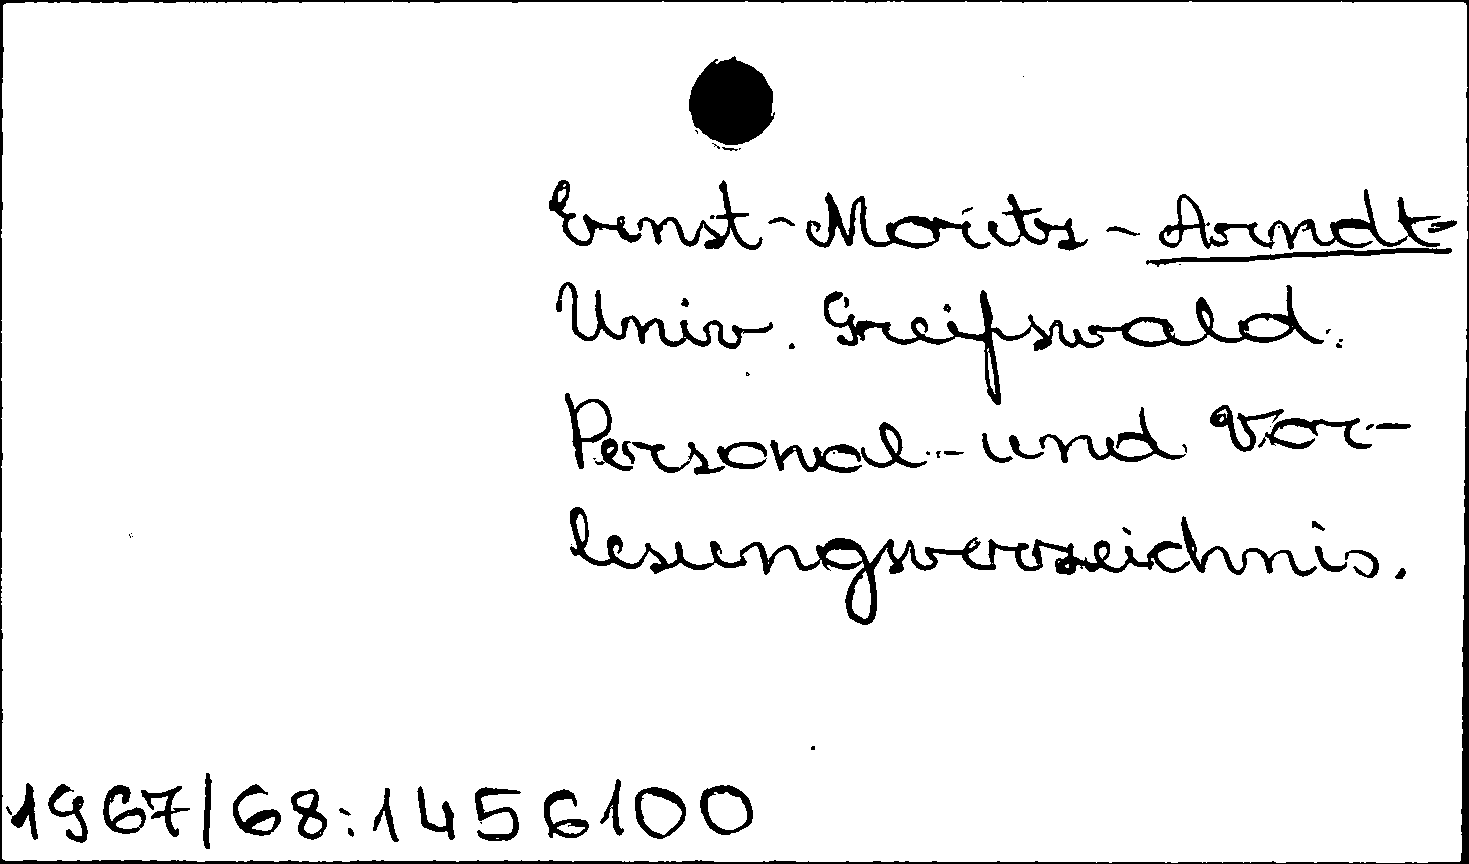 Ernst-Moritz-Arndt-
Univ. Greifswald.
Personal- und Vor-
lesungsverzeichnis.
1967/68:1456100